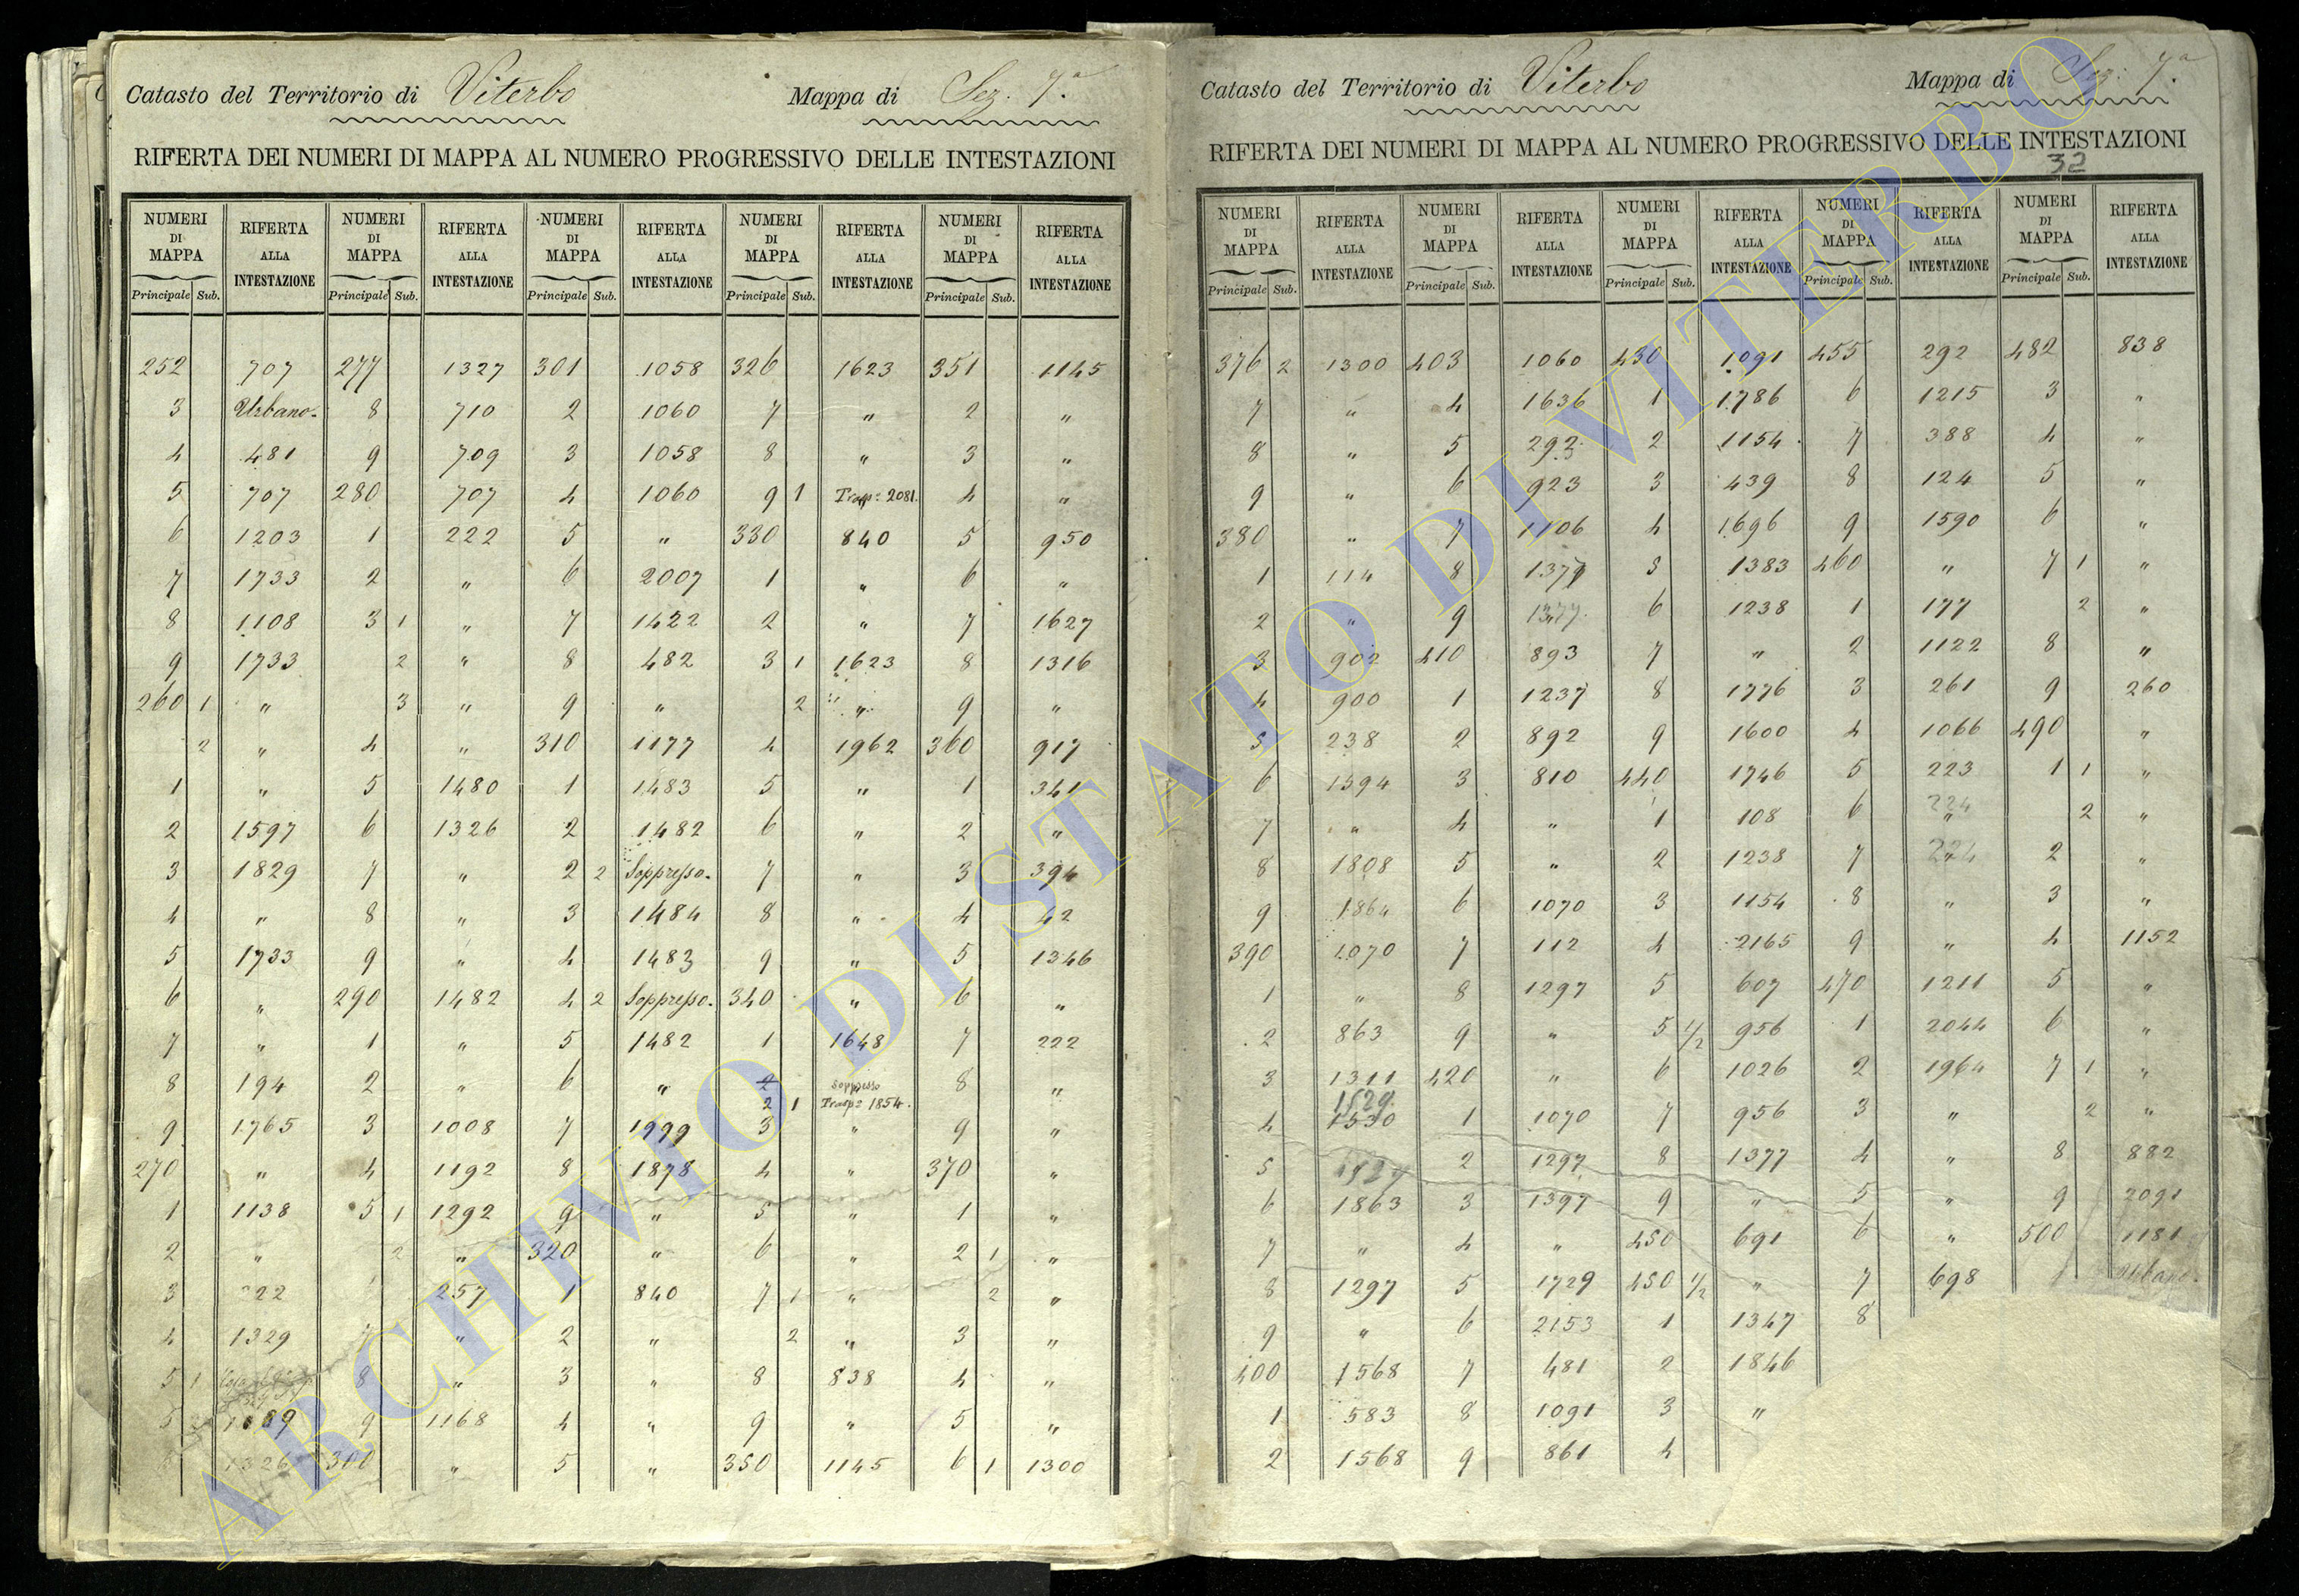 Catasto del Territorio di Viterbo Mappa di Sez. 7.a
RIFERTA DEI NUMERI DI MAPPA AL NUMERO PROGRESSIVO DELLE INTESTAZIONI
NUMERI DI MAPPA RIFERTA ALLA INTESTAZIONE NUMERI DI MAPPA RIFERTA ALLA INTESTAZIONE NUMERI DI MAPPA RIFERTA ALLA INTESTAZIONE NUMERI DI MAPPA RIFERTA ALLA INTESTAZIONE NUMERI DI MAPPA RIFERTA ALLA INTESTAZIONE
Principale Sub. Principale Sub. Principale Sub. Principale Sub. Principale Sub.
252 707 277 1327 301 1058 326 1623 351 1145
3 Urbano. 8 710 2 1060 7 " 2 "
4 481 9 709 3 1058 8 " 3 "
5 707 280 707 4 1060 9 1 Trasp= 2081. 4 "
6 1203 1 222 5 " 330 840 5 950
7 1733 2 " 6 2007 1 " 6 "
8 1108 3 1 " 7 1422 2 " 7 1627
9 1733 2 " 8 482 3 1 1623 8 1316
260 1 " 3 " 9 " 2 " 9 "
2 " 4 " 310 1177 4 1962 360 917
1 " 5 1480 1 1483 5 " 1 341
2 1597 6 1326 2 1482 6 " 2 "
3 1829 7 " 2 2 Soppresso. 7 " 3 394
4 " 8 " 3 1484 8 " 4 42
5 1733 9 " 4 1483 9 " 5 1346
6 " 290 1482 4 2 Soppresso. 340 " 6 "
7 " 1 " 5 1482 1 1648 7 222
8 194 2 " 6 " 2 Soppresso 8 "
2 1 Trasp= 1854.
9 1765 3 1008 7 1999 3 " 9 "
270 " 4 1192 8 1878 4 " 370 "
1 1138 5 1 1292 9 " 5 " 1 "
2 " 2 " 320 " 6 " 2 1 "
3 222 257 1 840 7 1 " 2 "
4 1329 7 " 2 " 2 " 3 "
5 1 8 " 3 " 8 838 4 "
5 9 1168 4 " 9 " 5 "
1326 300 " 5 " 350 1145 6 1 1300
Catasto del Territorio di Viterbo Mappa di Sez. 7.a
RIFERTA DEI NUMERI DI MAPPA AL NUMERO PROGRESSIVO DELLE INTESTAZIONI
32
NUMERI DI MAPPA RIFERTA ALLA INTESTAZIONE NUMERI DI MAPPA RIFERTA ALLA INTESTAZIONE NUMERI DI MAPPA RIFERTA ALLA INTESTAZIONE NUMERI DI MAPPA RIFERTA ALLA INTESTAZIONE NUMERI DI MAPPA RIFERTA ALLA INTESTAZIONE
Principale Sub. Principale Sub. Principale Sub. Principale Sub. Principale Sub.
376 2 1300 403 1060 430 1091 455 292 482 838
7 " 4 1636 1 1786 6 1215 3 "
8 " 5 292 2 1154 7 388 4 "
9 " 6 923 3 439 8 124 5 "
380 " 7 1106 4 1696 9 1590 6 "
1 114 8 1379 5 1383 460 " 7 1 "
2 " 9 1377 6 1238 1 177 2 "
3 902 410 893 7 " 2 1122 8 "
4 900 1 1237 8 1776 3 261 9 260
5 238 2 892 9 1600 4 1066 490 "
6 1394 3 810 440 1746 5 223 1 1 "
7 " 4 " 1 108 6 224 2 "
8 1808 5 " 2 1238 7 224 2 "
9 1864 6 1070 3 1154 8 " 3 "
390 1070 7 112 4 2165 9 " 4 1152
1 " 8 1297 5 607 470 1211 5 "
2 863 9 " 5 1/2 956 1 2044 6 "
3 1311 420 " 6 1026 2 1964 7 1 "
1529.
4 1530 1 1070 7 956 3 " 2 "
5 1527 2 1297 8 1377 4 " 8 882
6 1863 3 1397 9 " 5 " 9 2091
7 " 4 " 450 691 6 " 500 1181
8 1297 5 1729 450 1/2 " 7 698 1 Urbano.
9 " 6 2153 1 1347 8
400 1568 7 481 2 1846
1 583 8 1091 3 "
2 1568 9 861 4
ARCHIVIO DI STATO DI VITERBO